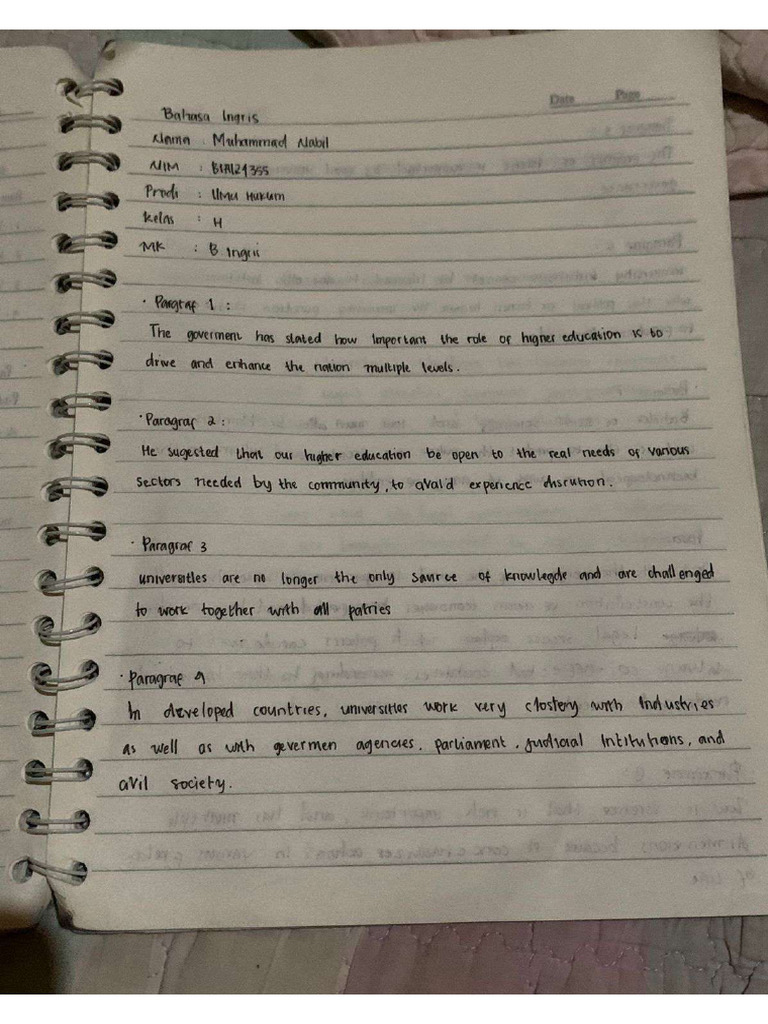 Date Page
Bahasa Ingris
Nama : Muhammad Nabil
NIM : B1A124355
Prodi : Ilmu Hukum
Kelas : H
MK : B Ingris
• Paragraf 1 :
The goverment has stated how important the role of higher education is to
drive and enhance the nation multiple levels.
• Paragraf 2 :
He sugested that our higher education be open to the real needs of various
sectors needed by the community, to avaid experience disrution.
• Paragraf 3
universities are no longer the only saurce of knowlegde and are challenged
to work together with all patries
• Paragraf 4
In developed countries, universities work very clostery with industries
as well as with govermen agencies, parliament, judicial intitutions, and
civil society.